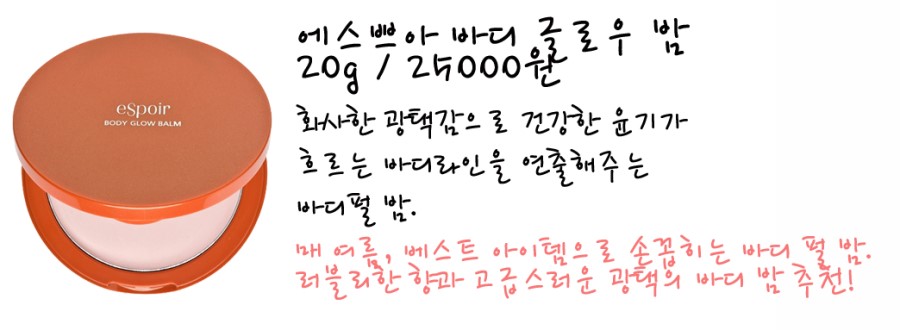 eSpoir
BODY GLOW BALM
에스쁘아 바디 글로우 밤
20g / 25000원
화사한 광택감으로 건강한 윤기가
흐르는 바디라인을 연출해주는
바디펄 밤.
매 여름, 베스트 아이템으로 손꼽히는 바디 펄 밤.
러블리한 향과 고급스러운 광택의 바디 밤 추천!